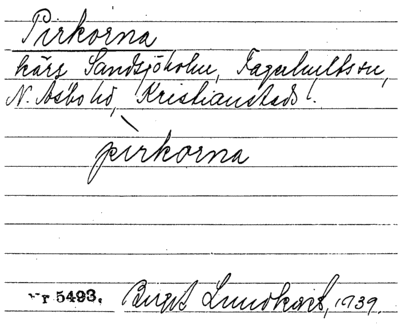 Pirkorna
kärs Sandsjöholm, Fagerhults sn,
N. Åsbo hd, Kristianstads l.
pìrkorna
Nr 5493. Birgit Lundkvist, 1939.